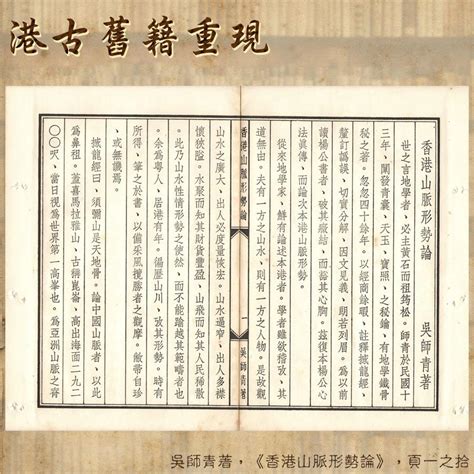 港古舊籍重現
香港山脈形勢論　吳師青著
世之言地學者，必主黃石而祖筠松。師青於民國十
三年，闡發青囊、天玉、寶照，之秘鑰，有地學鐵骨
秘之著。忽忽四十餘年，以經商餘暇，註釋撼龍經。
釐訂譌誤，切實發分、因文見義，期若列眉。為以前
讀楊公書者，破其癥結，而豁其心胸。茲復本楊公心
法真傳，而論次本港山脈形勢。
從來地學家，鮮有論述本港者。學者雖欲稽攷，其
道無由。夫有一方之山水，則有一方之人物。是故觀
香港山脈形勢論　一　吳師青著
山水之廣大，出人必度量恢宏。山水逼窄，出人多襟
懷狹隘。水聚而知其財貨豐盈，山飛而知其人民稀散
。此乃山水性情形勢之使然，而不能踰越其範疇者也
。余為粵人，居港有年。徧歷山川，攷其形勢。時有
所得，筆之於書，以備采風攬勝者之觀摩。敝帚自珍
，或無譏焉。
撼龍經曰，須彌山是天地骨。論中國山脈者，以此
為鼻祖。蓋喜馬拉雅山，古稱崑崙，高出海面二九二
〇〇呎，當日視為世界第一高峯也。為亞洲山脈之脊
吳師青著，《香港山脈形勢論》，頁一之拾